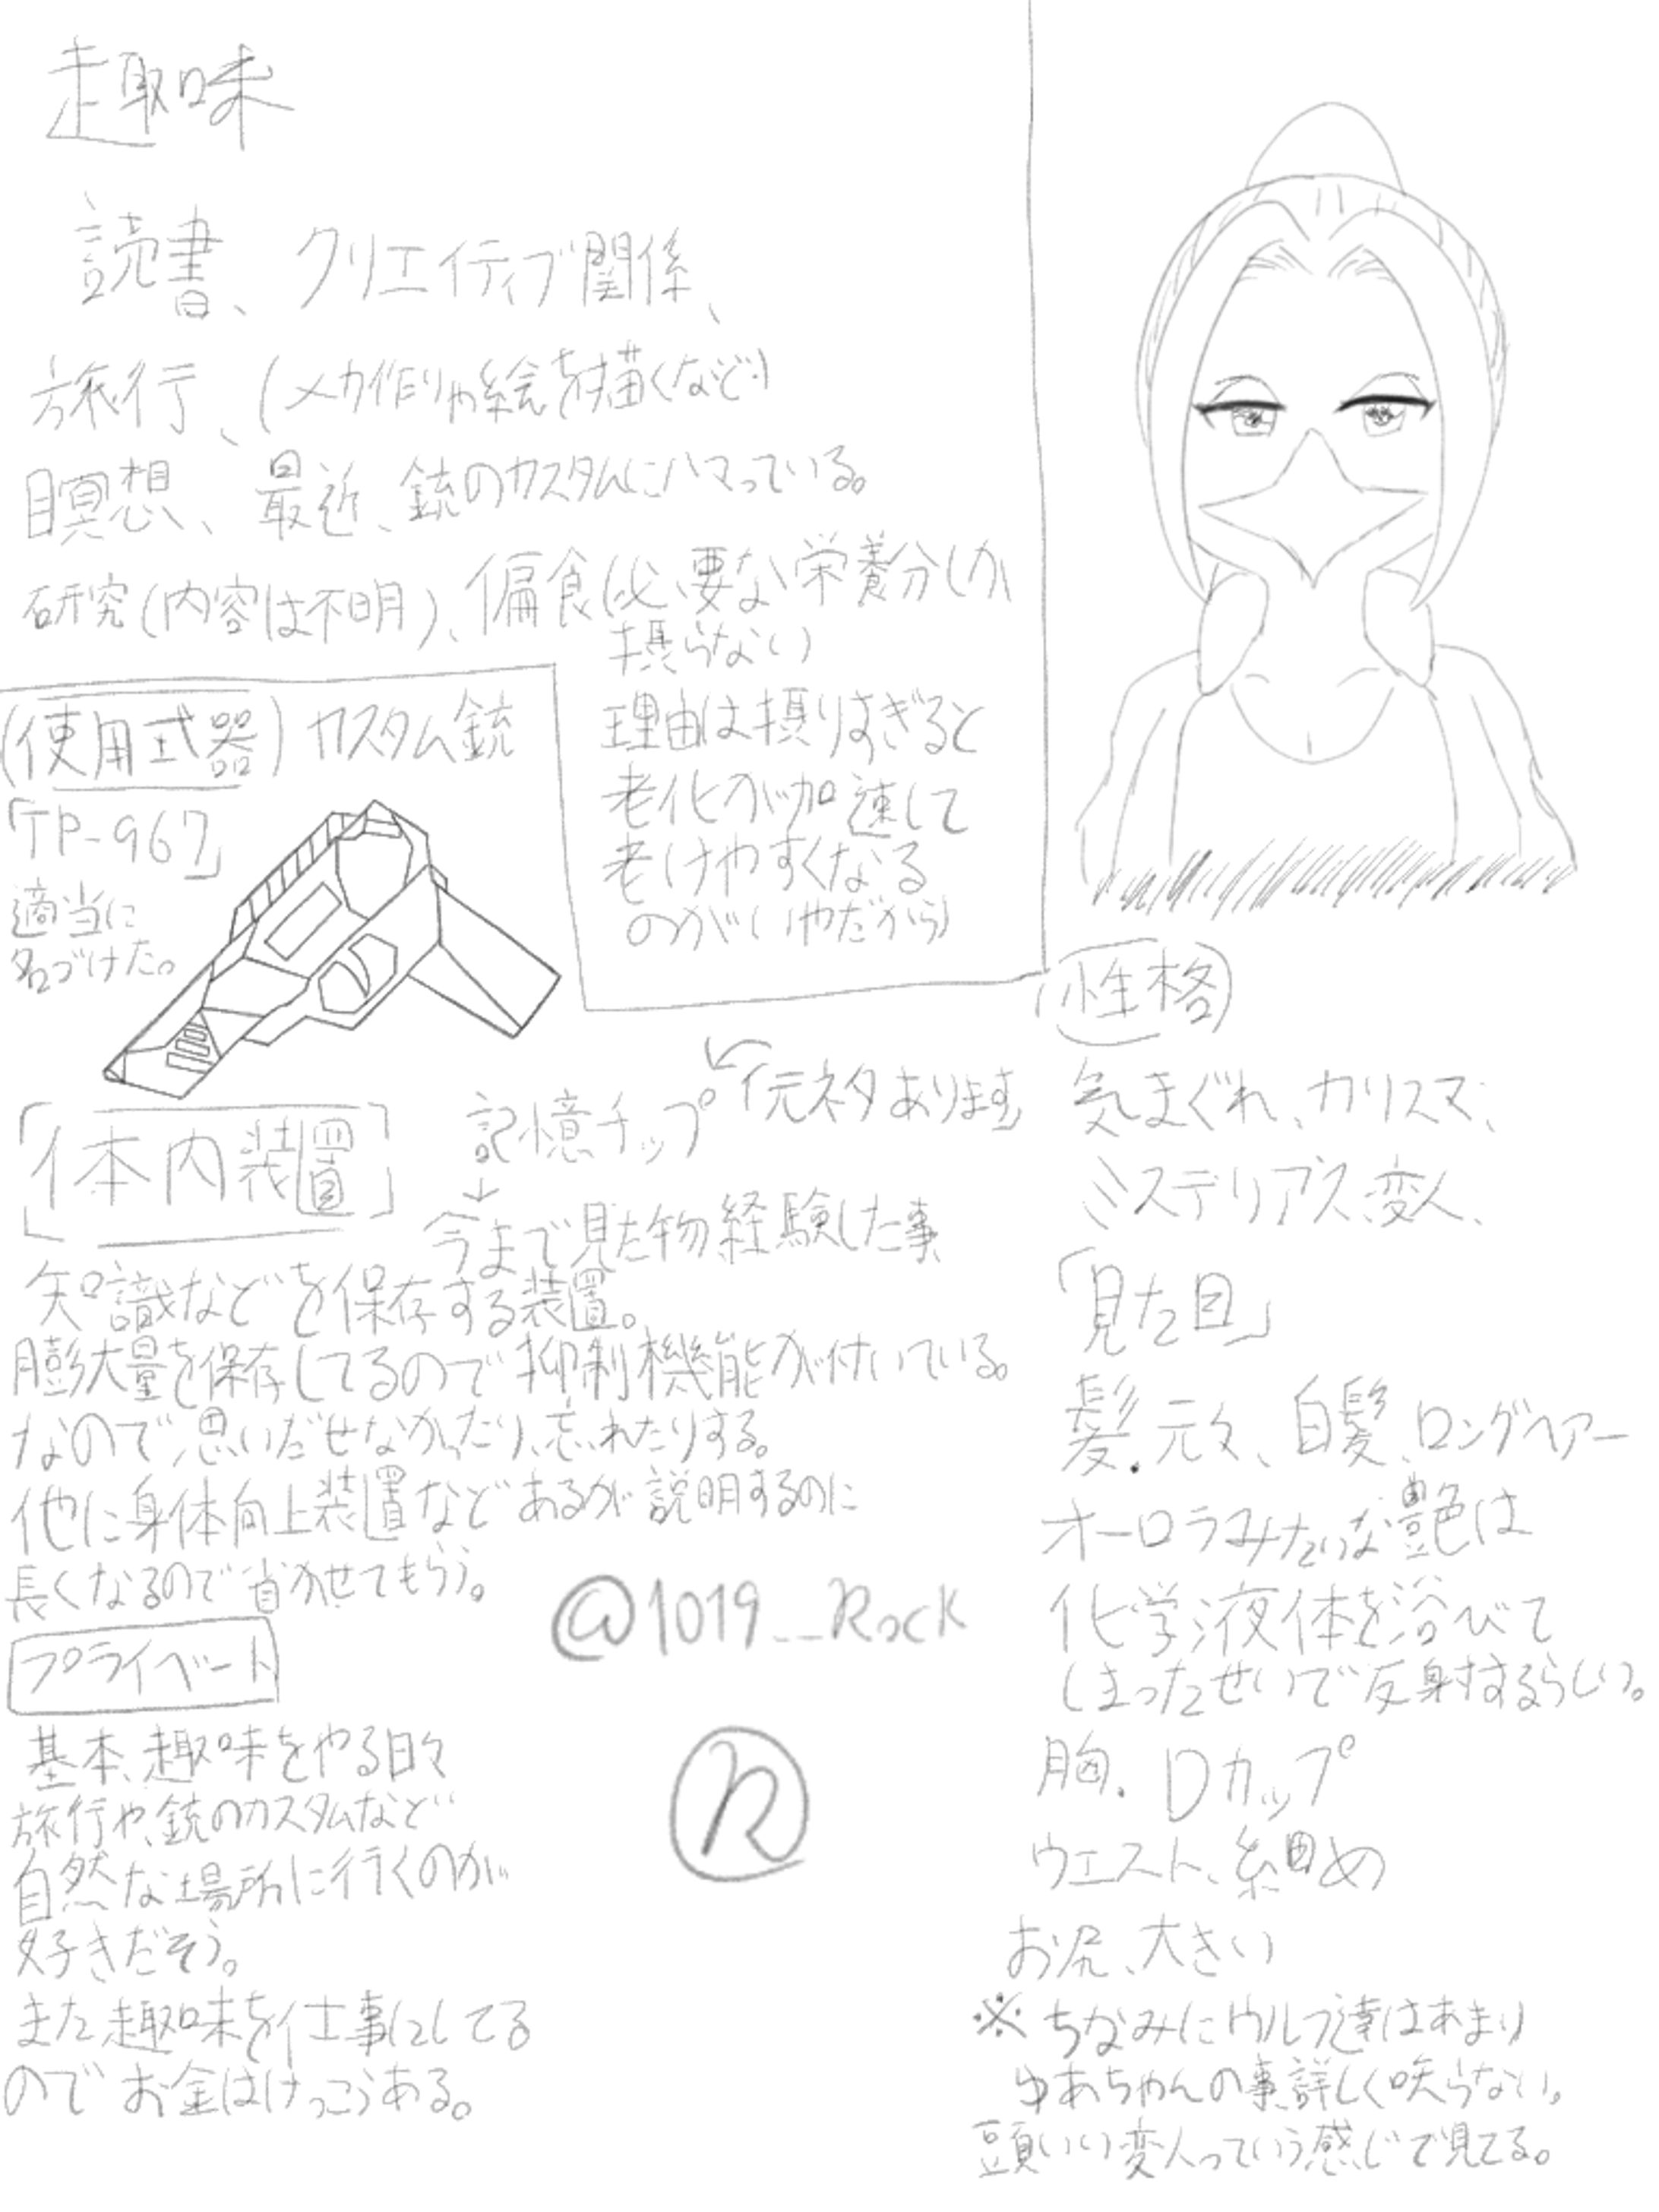 趣味
読書、クリエイティブ関係、
旅行、(メカ作りや絵を描くなど)
瞑想、最近、銃のカスタムにハマっている。
研究(内容は不明)、偏食(必要な栄養分しか
摂らない
理由は摂りすぎると
老化が加速して
老けやすくなる
のがいやだから)
(使用式器) カスタム銃
「TP-967」
適当に
名づけた。
「体内装置」
記憶チップ ←「元ネタあります」
↓
今まで見た物経験した事
知識などを保存する装置。
膨大量を保存してるので抑制機能が付いている。
なので思いだせなかったり、忘れたりする。
他に身体向上装置などあるが説明するのに
長くなるので省かせてもらう。
プライベート
基本、趣味をやる日々
旅行や、銃のカスタムなど
自然な場所に行くのが
好きだそう。
また趣味を仕事にしてる
のでお金はけっこうある。
@1019__Rock
R
(性格)
気まぐれ、カリスマ、
ミステリアス、変人、
「見た目」
髪.元々、白髪、ロングヘアー
オーロラみたいな艶は
化学液体を浴びて
しまったせいで反射するらしい。
胸.Dカップ
ウエスト、細め
お尻、大きい
※ちなみにウルフ達はあまり
ゆあちゃんの事詳しく知らない。
頭いい変人っていう感じで見てる。